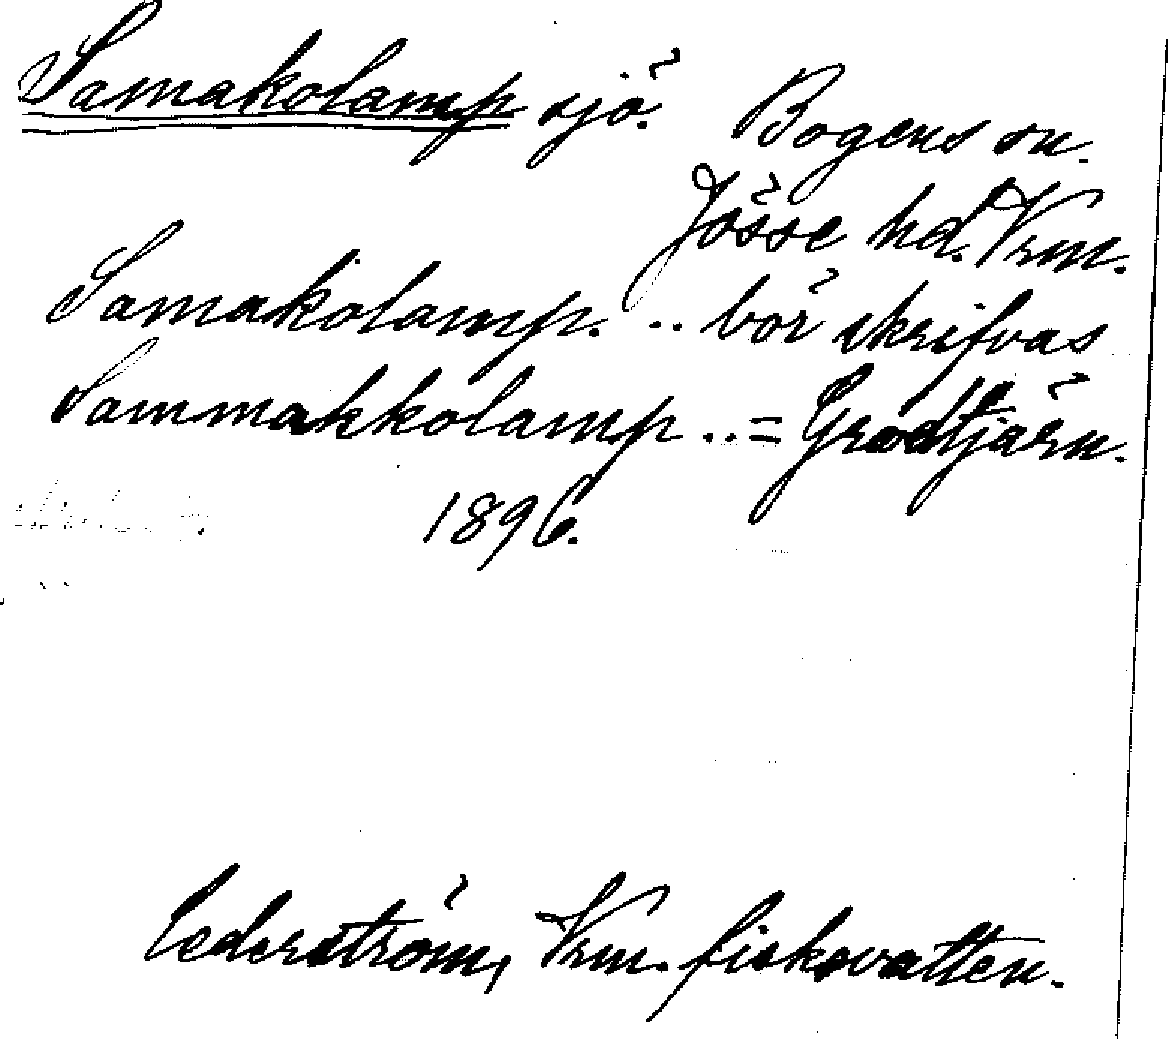 Samakolamp sjö. Bogens sn.
Jösse hd. Vrm.
Samakolamp. .. bör skrifvas
Sammakkolamp .. = Grodtjärn.
1896.
Cederström, Vrm. fiskevatten.